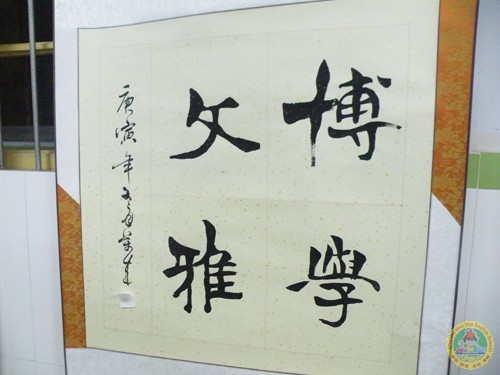 博學
文雅
庚寅年